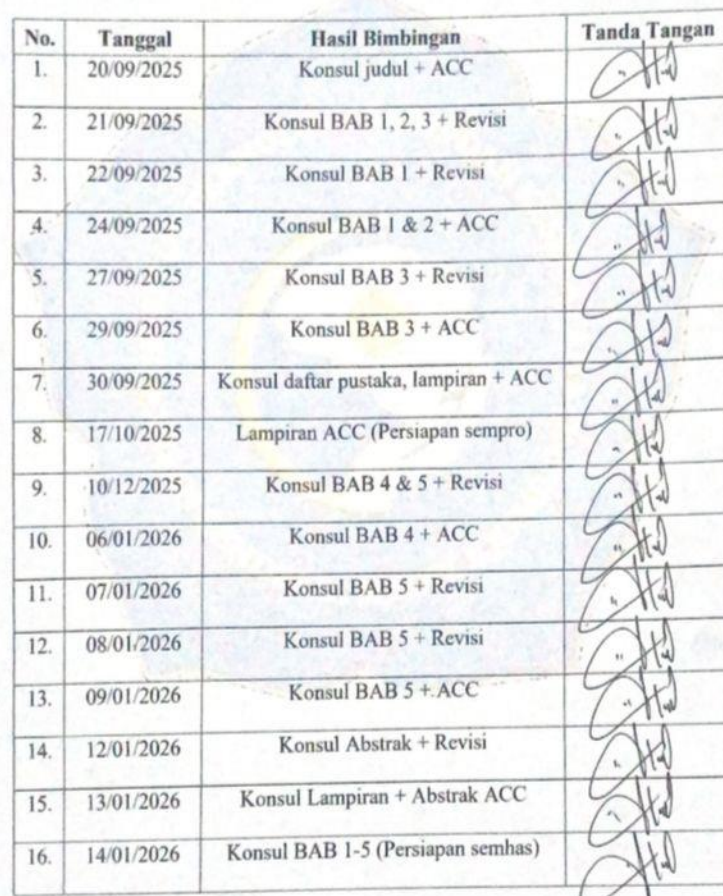 No. Tanggal Hasil Bimbingan Tanda Tangan
1. 20/09/2025 Konsul judul + ACC
2. 21/09/2025 Konsul BAB 1, 2, 3 + Revisi
3. 22/09/2025 Konsul BAB 1 + Revisi
4. 24/09/2025 Konsul BAB 1 & 2 + ACC
5. 27/09/2025 Konsul BAB 3 + Revisi
6. 29/09/2025 Konsul BAB 3 + ACC
7. 30/09/2025 Konsul daftar pustaka, lampiran + ACC
8. 17/10/2025 Lampiran ACC (Persiapan sempro)
9. 10/12/2025 Konsul BAB 4 & 5 + Revisi
10. 06/01/2026 Konsul BAB 4 + ACC
11. 07/01/2026 Konsul BAB 5 + Revisi
12. 08/01/2026 Konsul BAB 5 + Revisi
13. 09/01/2026 Konsul BAB 5 + ACC
14. 12/01/2026 Konsul Abstrak + Revisi
15. 13/01/2026 Konsul Lampiran + Abstrak ACC
16. 14/01/2026 Konsul BAB 1-5 (Persiapan semhas)